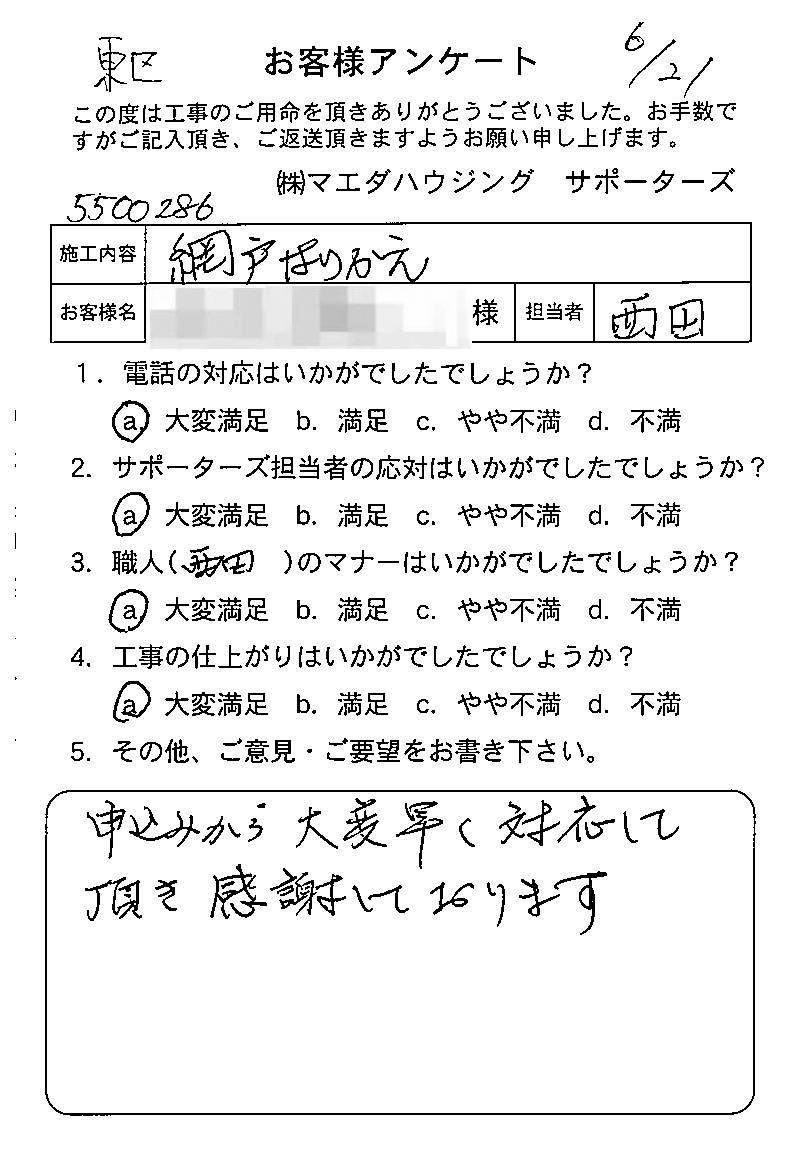 東区 お客様アンケート 6/21
この度は工事のご用命を頂きありがとうございました。お手数で
すがご記入頂き、ご返送頂きますようお願い申し上げます。
㈱マエダハウジング サポーターズ
5500286
施工内容 網戸はりかえ
お客様名 様 担当者 西田
1. 電話の対応はいかがでしたでしょうか?
a. 大変満足 b. 満足 c. やや不満 d. 不満
2. サポーターズ担当者の応対はいかがでしたでしょうか?
a. 大変満足 b. 満足 c. やや不満 d. 不満
3. 職人(西田 )のマナーはいかがでしたでしょうか?
a. 大変満足 b. 満足 c. やや不満 d. 不満
4. 工事の仕上がりはいかがでしたでしょうか?
a. 大変満足 b. 満足 c. やや不満 d. 不満
5. その他、ご意見・ご要望をお書き下さい。
申込みから大変早く対応して
頂き感謝しております